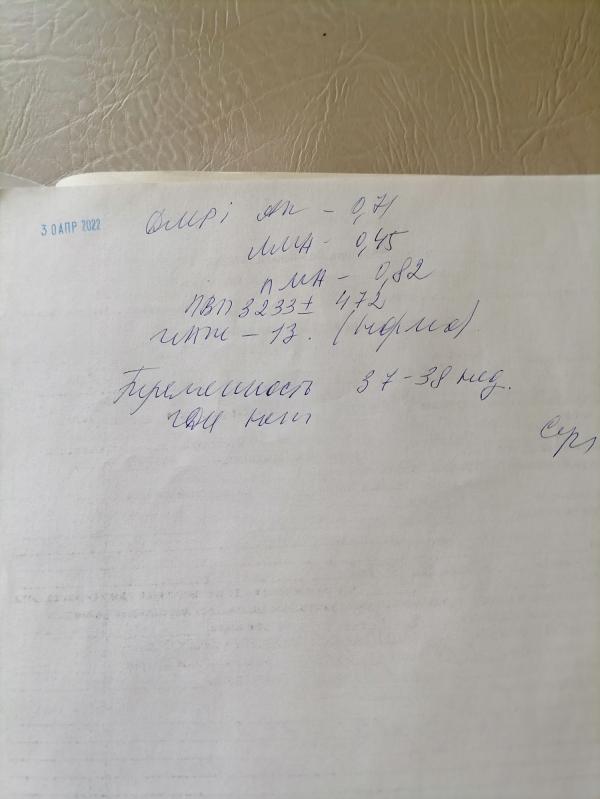 30 АПР 2022
ДМРi АП - 0,71
ЛМА - 0,45
ПМА - 0,82
ПВП 3233 ± 472
ИАЖ - 13. (норма)
Беременность 37-38 нед.
ГДН нет